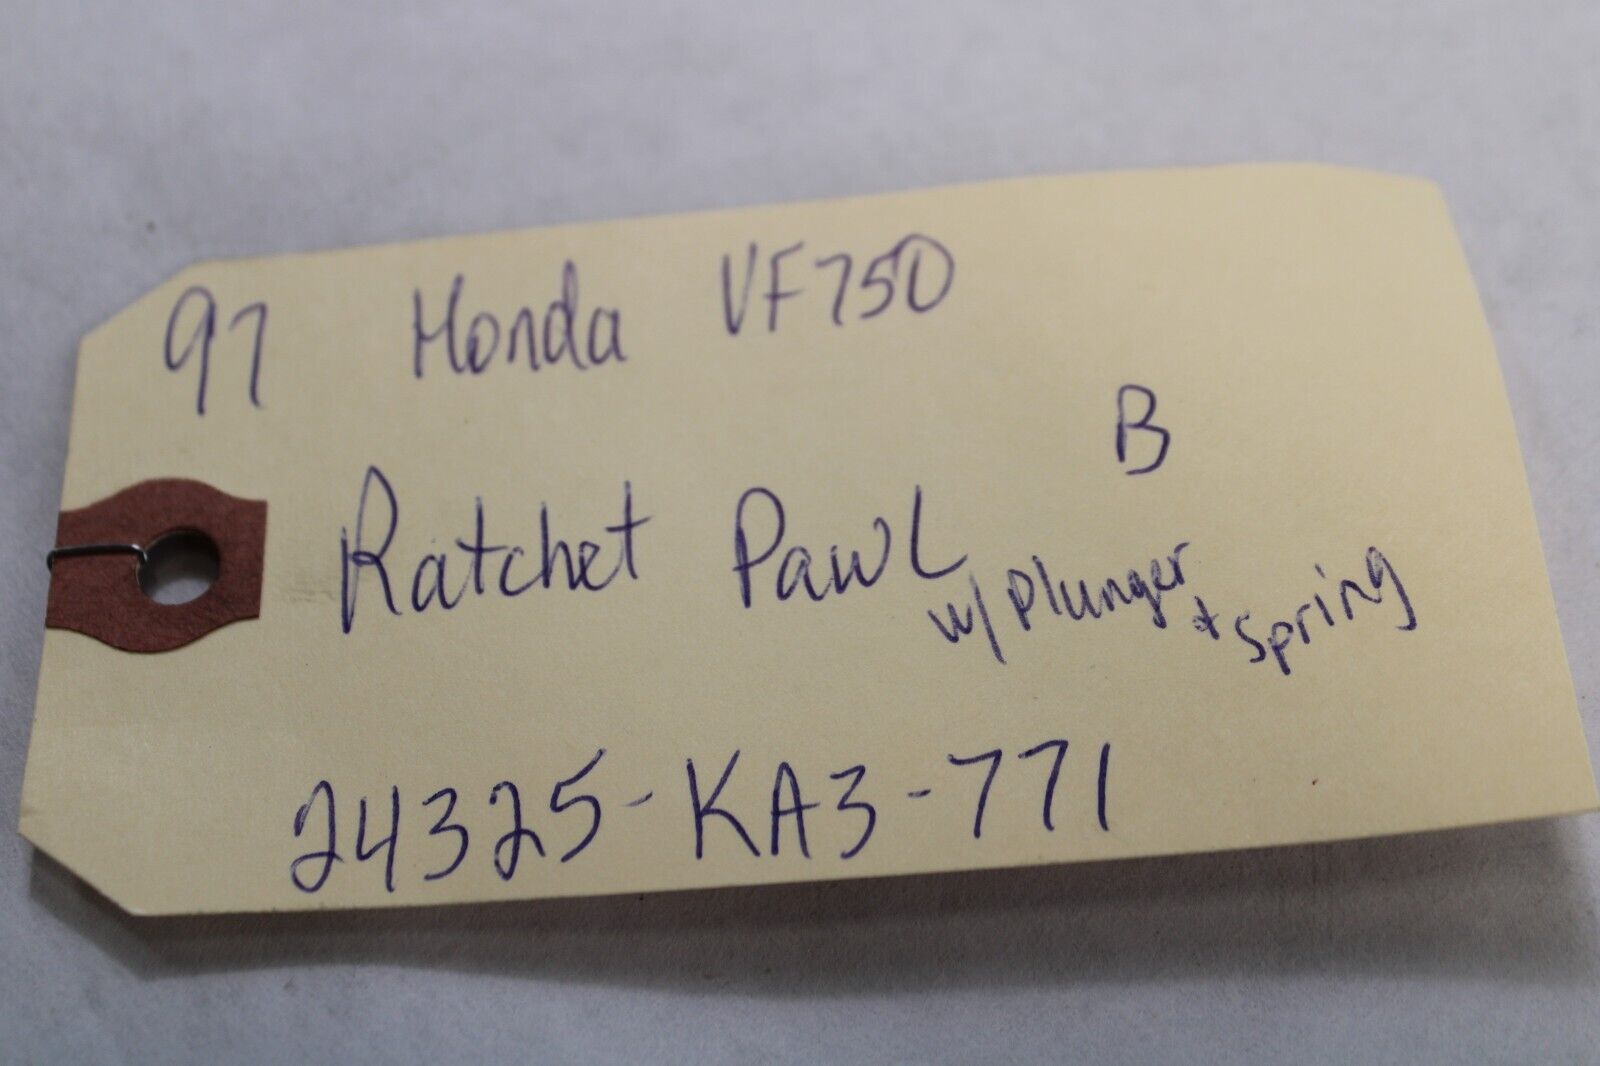 97 Honda VF750
B
Ratchet Pawl
w/ Plunger
+ Spring
24325-KA3-771